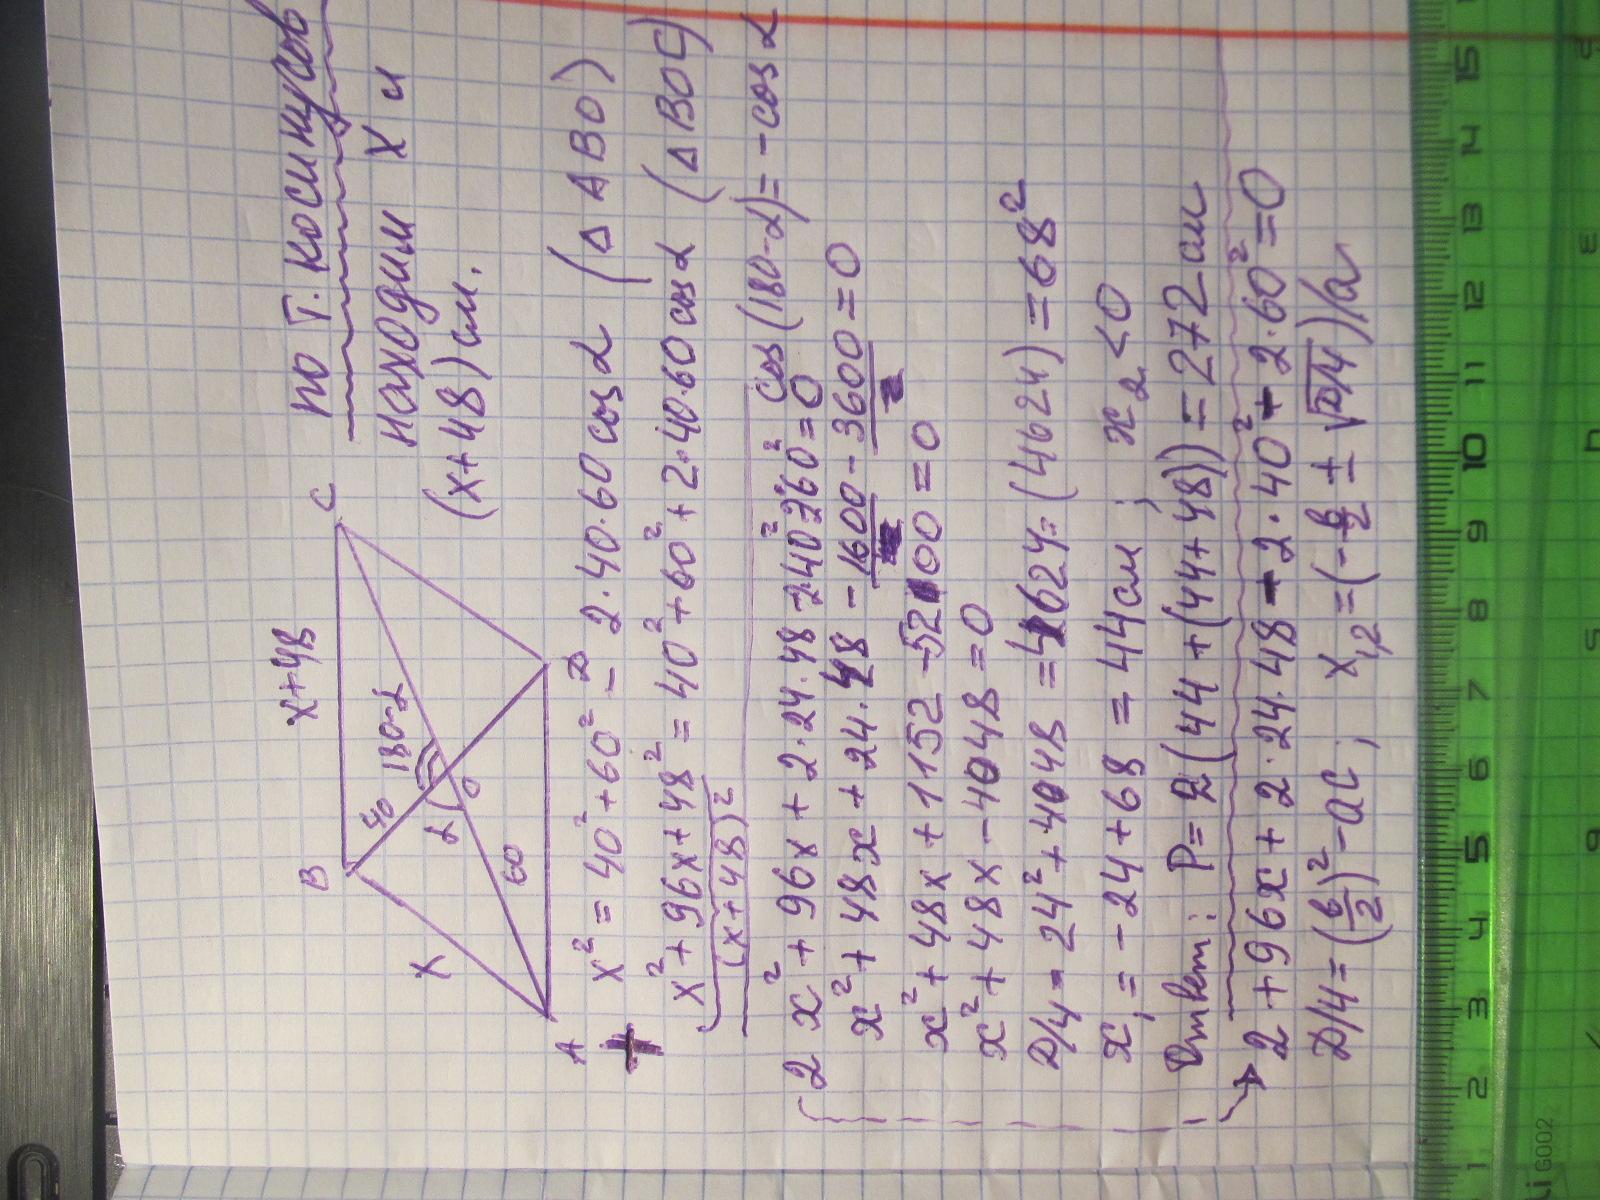 по т. косинусов
находим x и
(x+48) см.
x+48
B
C
40
180-α
α
O
x
60
A
D
x² = 40² + 60² - 2·40·60 cos α (Δ ABO)
+
x² + 96x + 48² = 40² + 60² + 2·40·60 cos α (Δ BOC)
(x+48)²
cos (180-α) = -cos α
2x² + 96x + 2·24·48 - 2·40² - 2·60² = 0
x² + 48x + 24·48 - 1600 - 3600 = 0
x² + 48x + 1152 - 5200 = 0
x² + 48x - 4048 = 0
D/4 = 24² + 4048 = 4624 = (4624) = 68²
x₁ = -24 + 68 = 44 см ; x₂ < 0
Ответ: P = 2(44 + (44+48)) = 272 см
2 + 96x + 2·24·48 - 2·40² - 2·60² = 0
D/4 = (b/2)² - ac ; x₁,₂ = (-b/2 ± √D/4)/a
1 2 3 4 5 6 7 8 9 10 11 12 13 14 15
G002